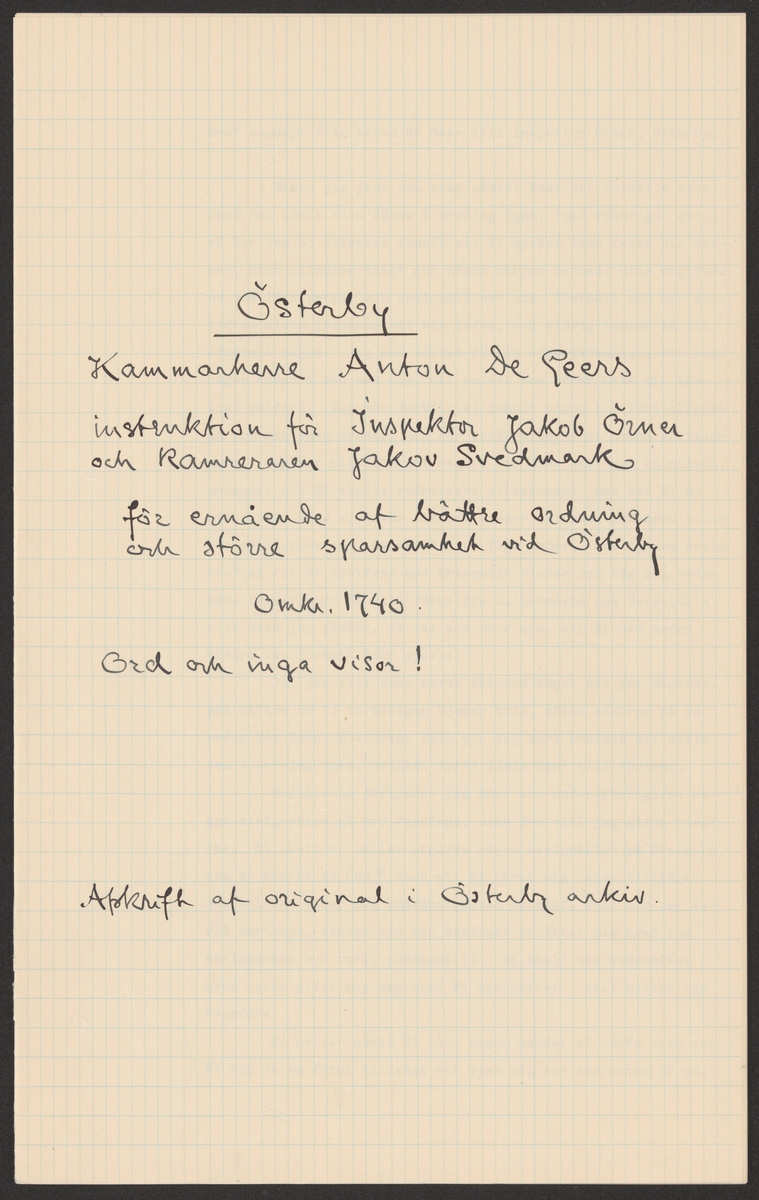 Österby
Kammarherre Anton De Geers
instruktion för Inspektor Jakob Örner
och Kamreraren Jakov Svedmark
för ernående af bättre ordning
och större sparsamhet vid Österby
Omkr. 1740.
Ord och inga visor!
Afskrift af original i Österby arkiv.